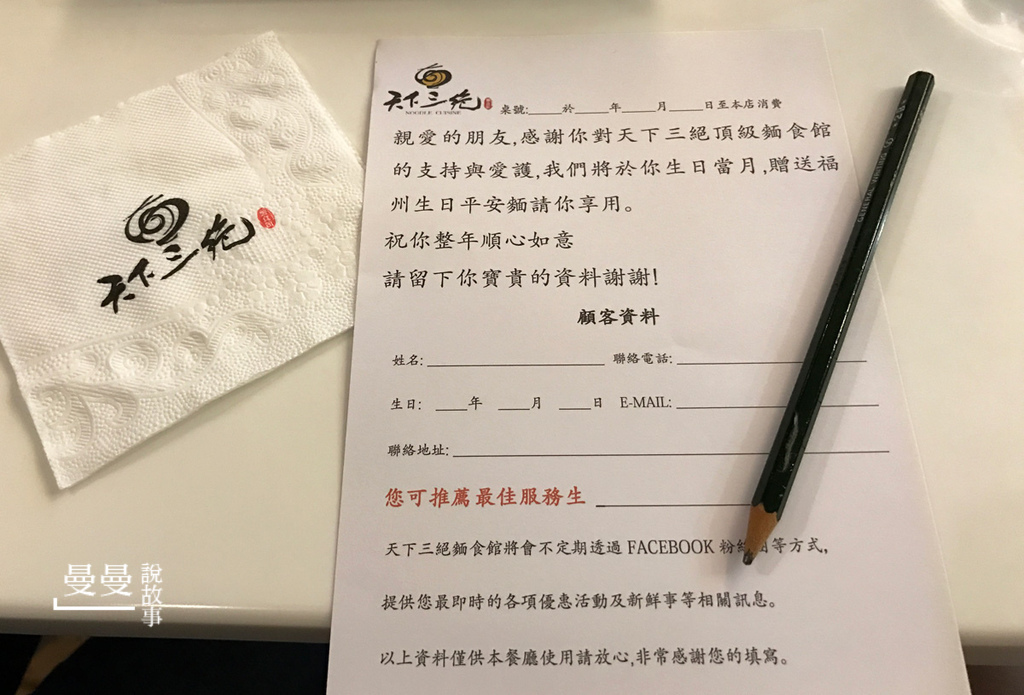 天下三绝
天下三绝
NOODLE CUISINE
桌號:_____於_____年_____月_____日至本店消費
親愛的朋友,感謝你對天下三絕頂級麵食館
的支持與愛護,我們將於你生日當月,贈送福
州生日平安麵請你享用。
祝你整年順心如意
請留下你寶貴的資料謝謝!
顧客資料
姓名: __________ 聯絡電話: __________
生日: ____年 ____月 ____日 E-MAIL: __________
聯絡地址: __________
您可推薦最佳服務生 __________
天下三絕麵食館將會不定期透過 FACEBOOK 粉絲團等方式,
提供您最即時的各項優惠活動及新鮮事等相關訊息。
以上資料僅供本餐廳使用請放心,非常感謝您的填寫。
曼曼
說故事